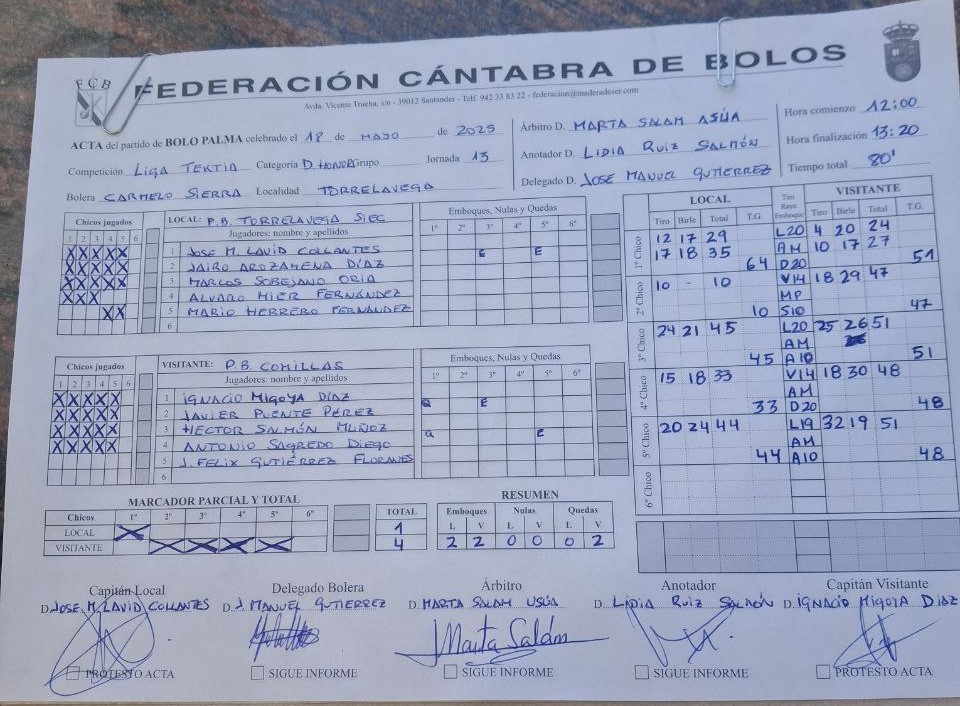 FCB
FEDERACIÓN CÁNTABRA DE BOLOS
Avda. Vicente Trueba, s/n - 39012 Santander - Telf. 942 33 83 22 - federacion@maderadeser.com
ACTA del partido de BOLO PALMA celebrado el 18 de MAYO de 2025
Competición LIGA TEKTIA Categoría D. HONOR Grupo Jornada 13
Bolera CARMELO SIERRA Localidad TORRELAVEGA
Árbitro D. MARTA SALAM ASÚA
Anotador D. LIDIA RUIZ SALMÓN
Delegado D. JOSE MANUEL GUTIERREZ
Hora comienzo 12:00
Hora finalización 13:20
Tiempo total 80'
Chicos jugados LOCAL: P.B. TORRELAVEGA SIEC Emboques, Nulas y Quedas
1 2 3 4 5 6 Jugadores: nombre y apellidos 1º 2º 3º 4º 5º 6º
X X X X X 1 JOSE M. LAVID COLLANTES E E
X X X X X 2 JAIRO AROZAMENA DÍAZ
X X X X X 3 MARLOS SOBEJANO ORIA
X X X 4 ALVARO MIER FERNÁNDEZ
X X 5 MARIO HERRERO FERNÁNDEZ
6
Chicos jugados VISITANTE: P.B. COMILLAS Emboques, Nulas y Quedas
1 2 3 4 5 6 Jugadores: nombre y apellidos 1º 2º 3º 4º 5º 6º
X X X X X 1 IGNACIO MIGOYA DÍAZ Q E
X X X X X 2 JAVIER PUENTE PÉREZ
X X X X X 3 HECTOR SALMÓN MUÑOZ Q E
X X X X X 4 ANTONIO SAGREDO DIEGO
5 J. FELIX GUTIÉRREZ FLORANES
6
LOCAL Tiro Raya Emboque VISITANTE
Tiro Birle Total T.G. Tiro Birle Total T.G.
1º Chico 12 17 29 L20 4 20 24
17 18 35 AM 10 17 27
64 D20 51
2º Chico 10 - 10 V14 18 29 47
MP
10 S10 47
3º Chico 24 21 45 L20 25 26 51
AM
45 A10 51
4º Chico 15 18 33 V14 18 30 48
AM
33 D20 48
5º Chico 20 24 44 L19 32 19 51
AM
44 A10 48
6º Chico
MARCADOR PARCIAL Y TOTAL
Chicos 1º 2º 3º 4º 5º 6º TOTAL
LOCAL X 1
VISITANTE X X X X 4
RESUMEN
Emboques Nulas Quedas
L V L V L V
2 2 0 0 0 2
Capitán Local Delegado Bolera Árbitro Anotador Capitán Visitante
D. JOSE M. LAVID COLLANTES D. J. MANUEL GUTIERREZ D. MARTA SALAM USÚA D. LIDIA RUIZ SALMÓN D. IGNACIO MIGOYA DIAZ
Marta Salám
PROTESTO ACTA SIGUE INFORME SIGUE INFORME SIGUE INFORME PROTESTO ACTA